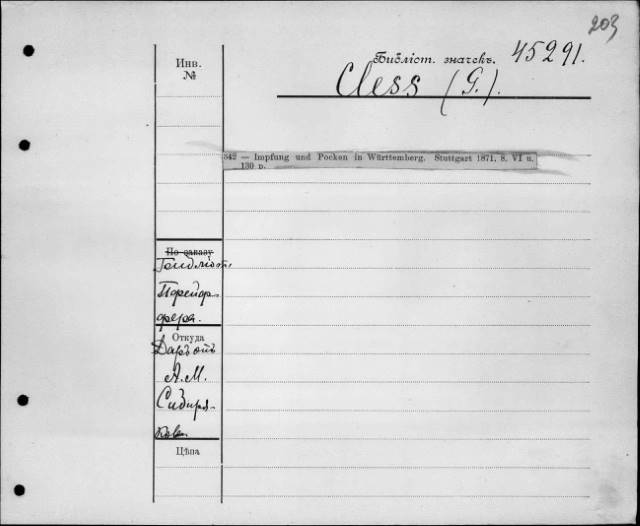 203
Инв.
№
Библіот. значекъ. 45291.
Cless (G.).
342 — Impfung und Pocken in Württemberg. Stuttgart 1871. 8. VI u.
130 p.
По заказу
Пфейф-
фера.
Откуда
Даръ отъ
А.М.
Сибиря-
кова
Цѣна